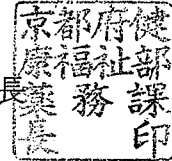 長
京都府健
康福祉部
薬務課
長印